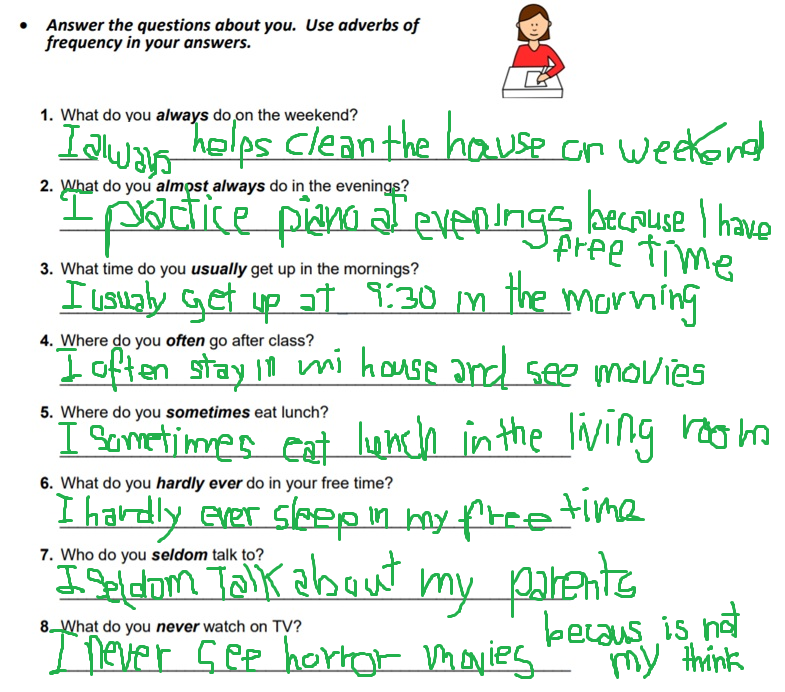 • Answer the questions about you. Use adverbs of
frequency in your answers.
1. What do you always do on the weekend?
I always helps clean the house on weekend
2. What do you almost always do in the evenings?
I practice piano at evenings because I have
free time
3. What time do you usually get up in the mornings?
I usualy get up at 9:30 in the morning
4. Where do you often go after class?
I often stay in mi house and see movies
5. Where do you sometimes eat lunch?
I sometimes eat lunch in the living room
6. What do you hardly ever do in your free time?
I hardly ever sleep in my free time
7. Who do you seldom talk to?
I seldom Talk about my parents
8. What do you never watch on TV?
I never see horror movies becaus is not
my think